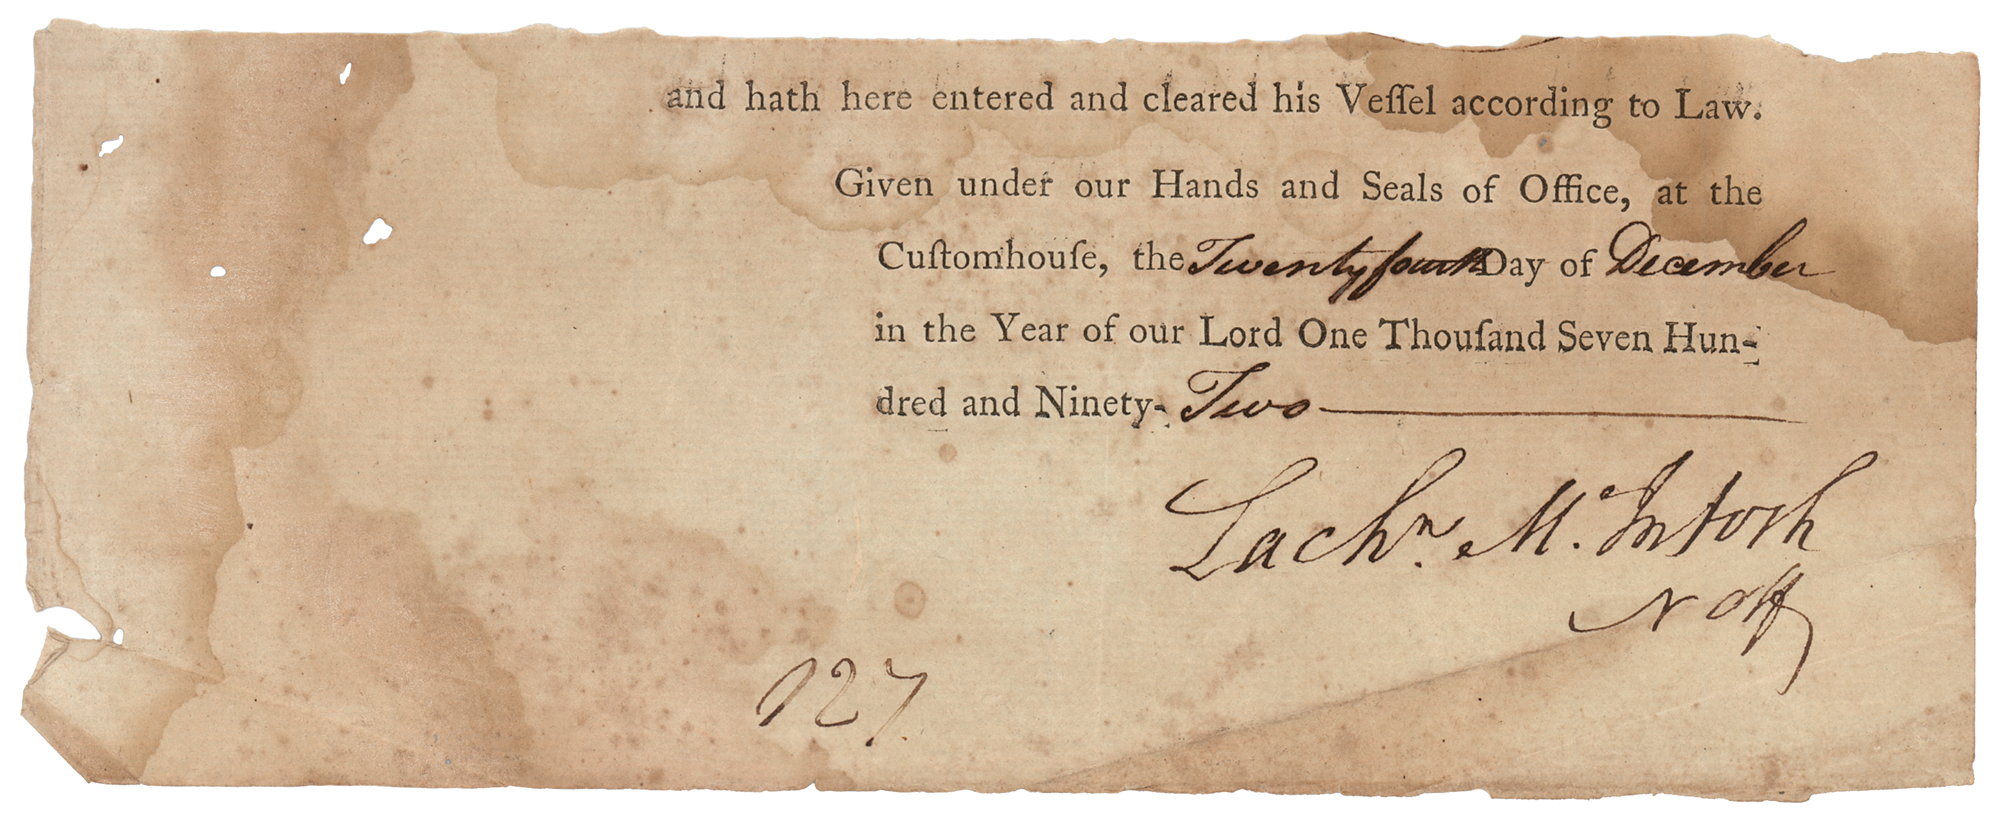 and hath here entered and cleared his Veſſel according to Law.
Given under our Hands and Seals of Office, at the
Cuſtomhouſe, the Twenty fourth Day of December
in the Year of our Lord One Thouſand Seven Hun-
dred and Ninety- Two
Lachn. McIntosh
N Off
127